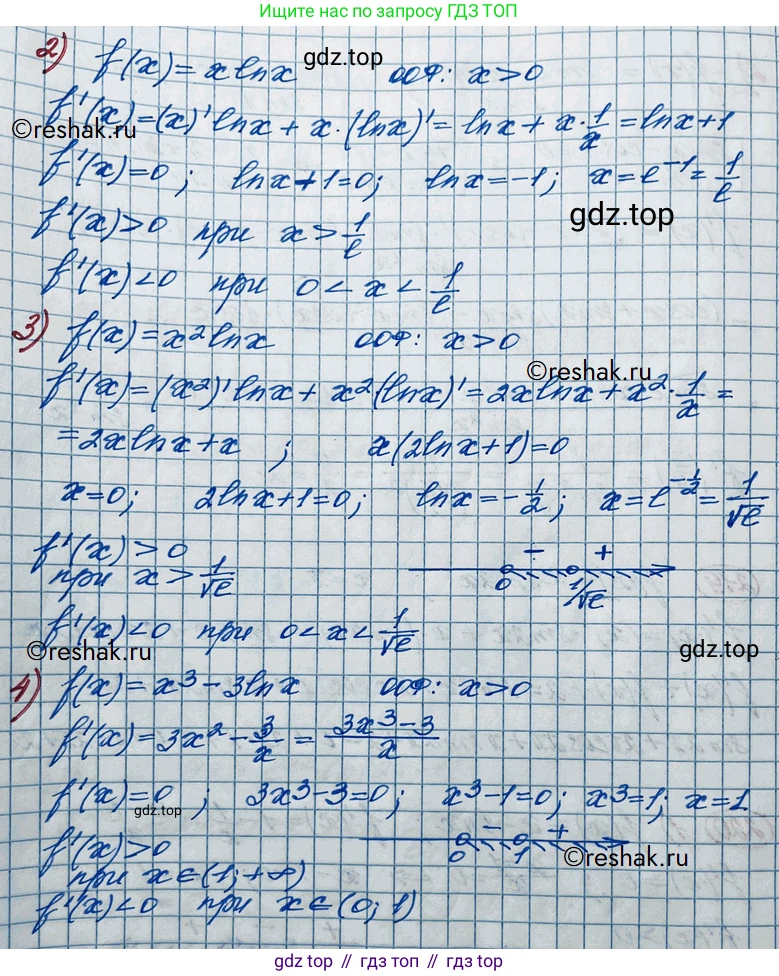 Ищите нас по запросу ГДЗ ТОП
2) f(x) = x ln x   ООФ: x > 0
gdz.top
f'(x) = (x)' ln x + x · (ln x)' = ln x + x · 1/x = ln x + 1
©reshak.ru
f'(x) = 0 ; ln x + 1 = 0; ln x = -1; x = e^-1 = 1/e
f'(x) > 0 при x > 1/e
gdz.top
f'(x) < 0 при 0 < x < 1/e
3) f(x) = x² ln x   ООФ: x > 0
©reshak.ru
f'(x) = (x²)' ln x + x² (ln x)' = 2x ln x + x² · 1/x =
= 2x ln x + x ; x(2 ln x + 1) = 0
x = 0; 2 ln x + 1 = 0; ln x = -1/2; x = e^-1/2 = 1/√e
f'(x) > 0
при x > 1/√e
- +
0 1/√e
f'(x) < 0 при 0 < x < 1/√e
©reshak.ru
gdz.top
4) f(x) = x³ - 3 ln x   ООФ: x > 0
f'(x) = 3x² - 3/x = (3x³ - 3)/x
f'(x) = 0 ; 3x³ - 3 = 0; x³ - 1 = 0; x³ = 1; x = 1
gdz.top
f'(x) > 0
- +
0 1
©reshak.ru
при x ∈ (1; +∞)
f'(x) < 0 при x ∈ (0; 1)
gdz top // гдз топ // gdz.top